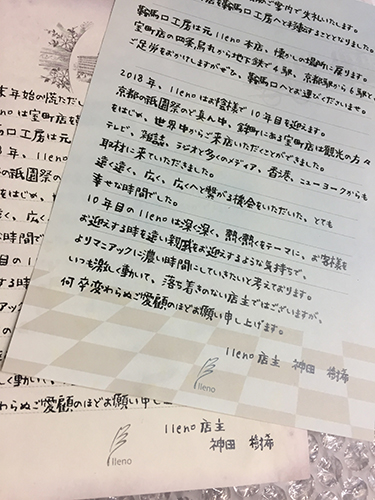 ご案内で失礼いたします。
店を鞍馬口工房へと移転することとなりました。
鞍馬口工房は元 lleno 本店、懐かしの場所に戻ります。
室町店の四条烏丸から地下鉄で4駅、京都駅から6駅と、
ご足労をおかけしますがぜひ、鞍馬口へとお運びくださいませ。
2018年、lleno はお陰様で10年目を迎えます。
京都の祇園祭のど真ん中、鉾町にある室町店は観光の方々
をはじめ、世界中からご来店いただくことができました。
テレビ、雑誌、ラジオと多くのメディア、香港、ニューヨークからも
取材に来ていただきました。
遠く遠く、広く、広くへと繋がる機会をいただいた、とても
幸せな時間でした。
10年目の lleno は深く深く、熱く熱くをテーマに、お客様を
お迎えする時を遠い親戚をお迎えするような気持ちで、
よりマニアックに濃い時間にしていきたいと考えております。
いつも激しく動いて、落ち着きのない店主ではございますが、
何卒変わらぬご愛顧のほどお願い申し上げます。
lleno 店主 神田 樹希
lleno
末年始の慌ただし
lleno は室町店を
鞍馬口工房は元
わらぬご愛顧のほどお願い申し上
lleno 店主
神田 樹希
lleno